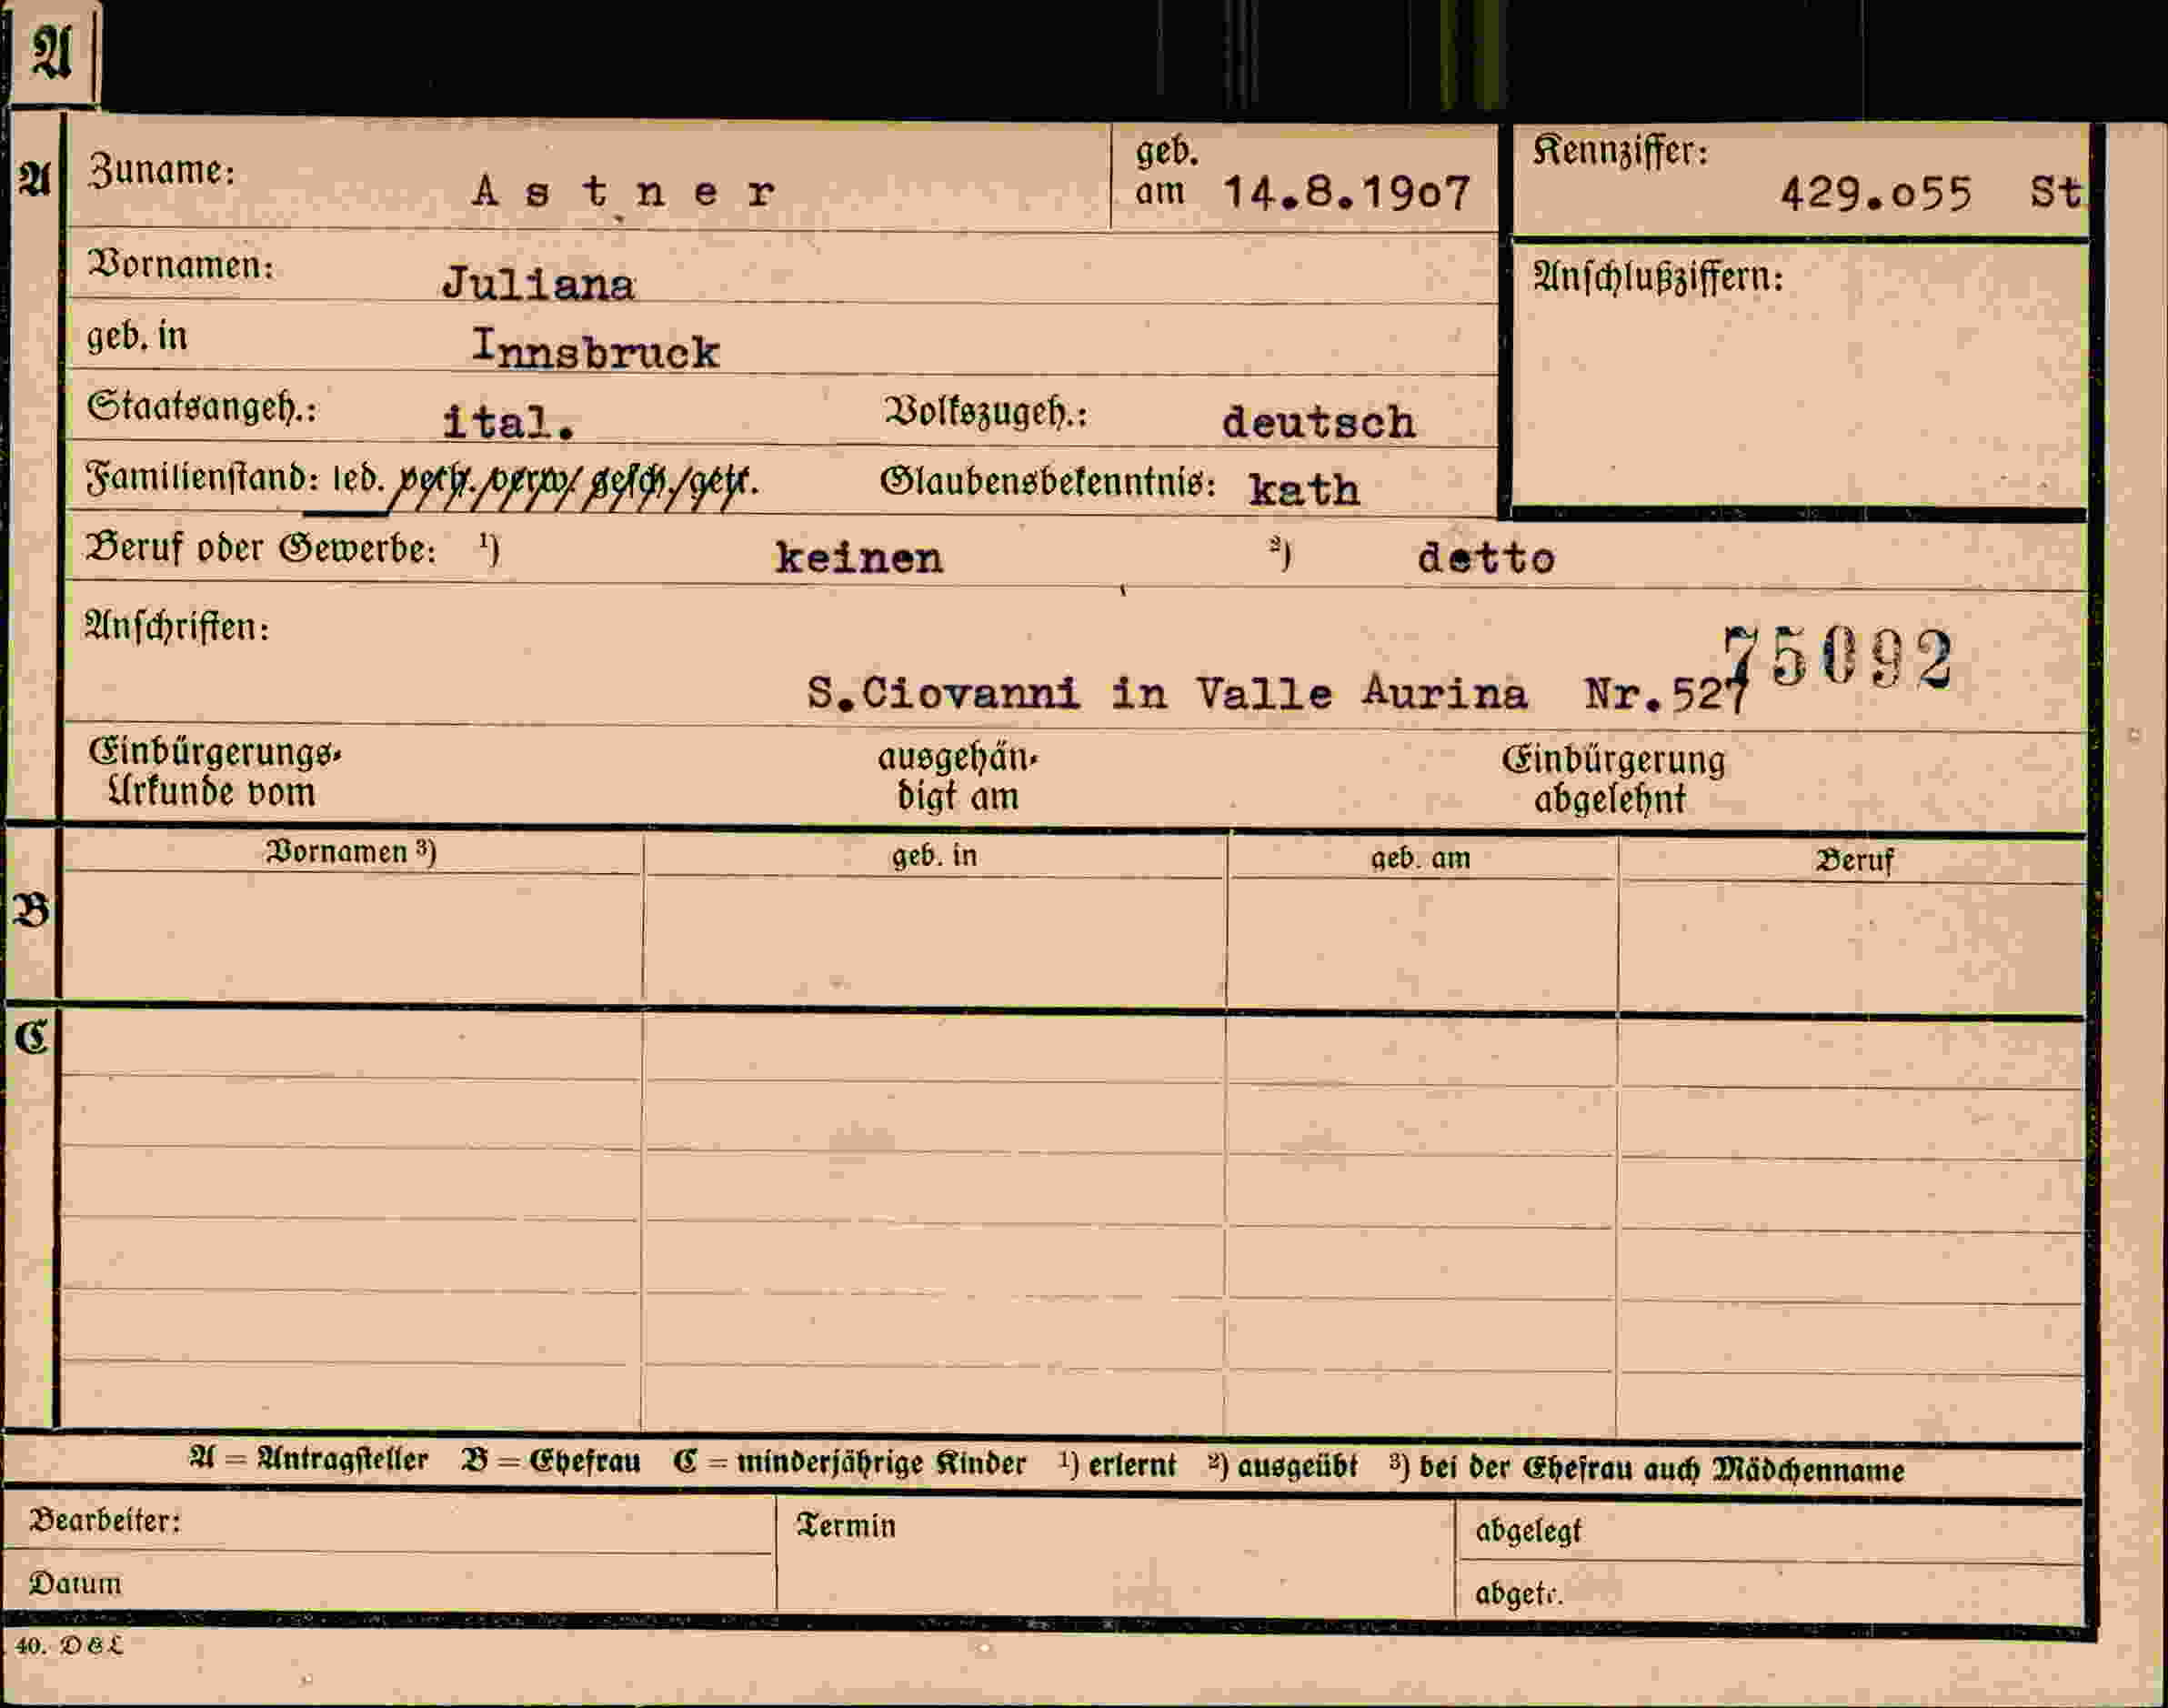 A
A
Zuname: Astner geb. am 14.8.19o7 Kennziffer: 429.o55 St
Vornamen: Juliana Anschlußziffern:
geb. in Innsbruck
Staatsangeh.: ital. Volkszugeh.: deutsch
Familienstand: led. verh./verw./gesch./getr. Glaubensbekenntnis: kath
Beruf oder Gewerbe: ¹) keinen ²) detto
Anschriften:
75092
S.Ciovanni in Valle Aurina Nr.527
Einbürgerungs- ausgehän- Einbürgerung
Urkunde vom digt am abgelehnt
Vornamen ³) geb. in geb. am Beruf
B
C
A = Antragsteller B = Ehefrau C = minderjährige Kinder ¹) erlernt ²) ausgeübt ³) bei der Ehefrau auch Mädchenname
Bearbeiter: Termin abgelegt
Datum abgetr.
40. D&L